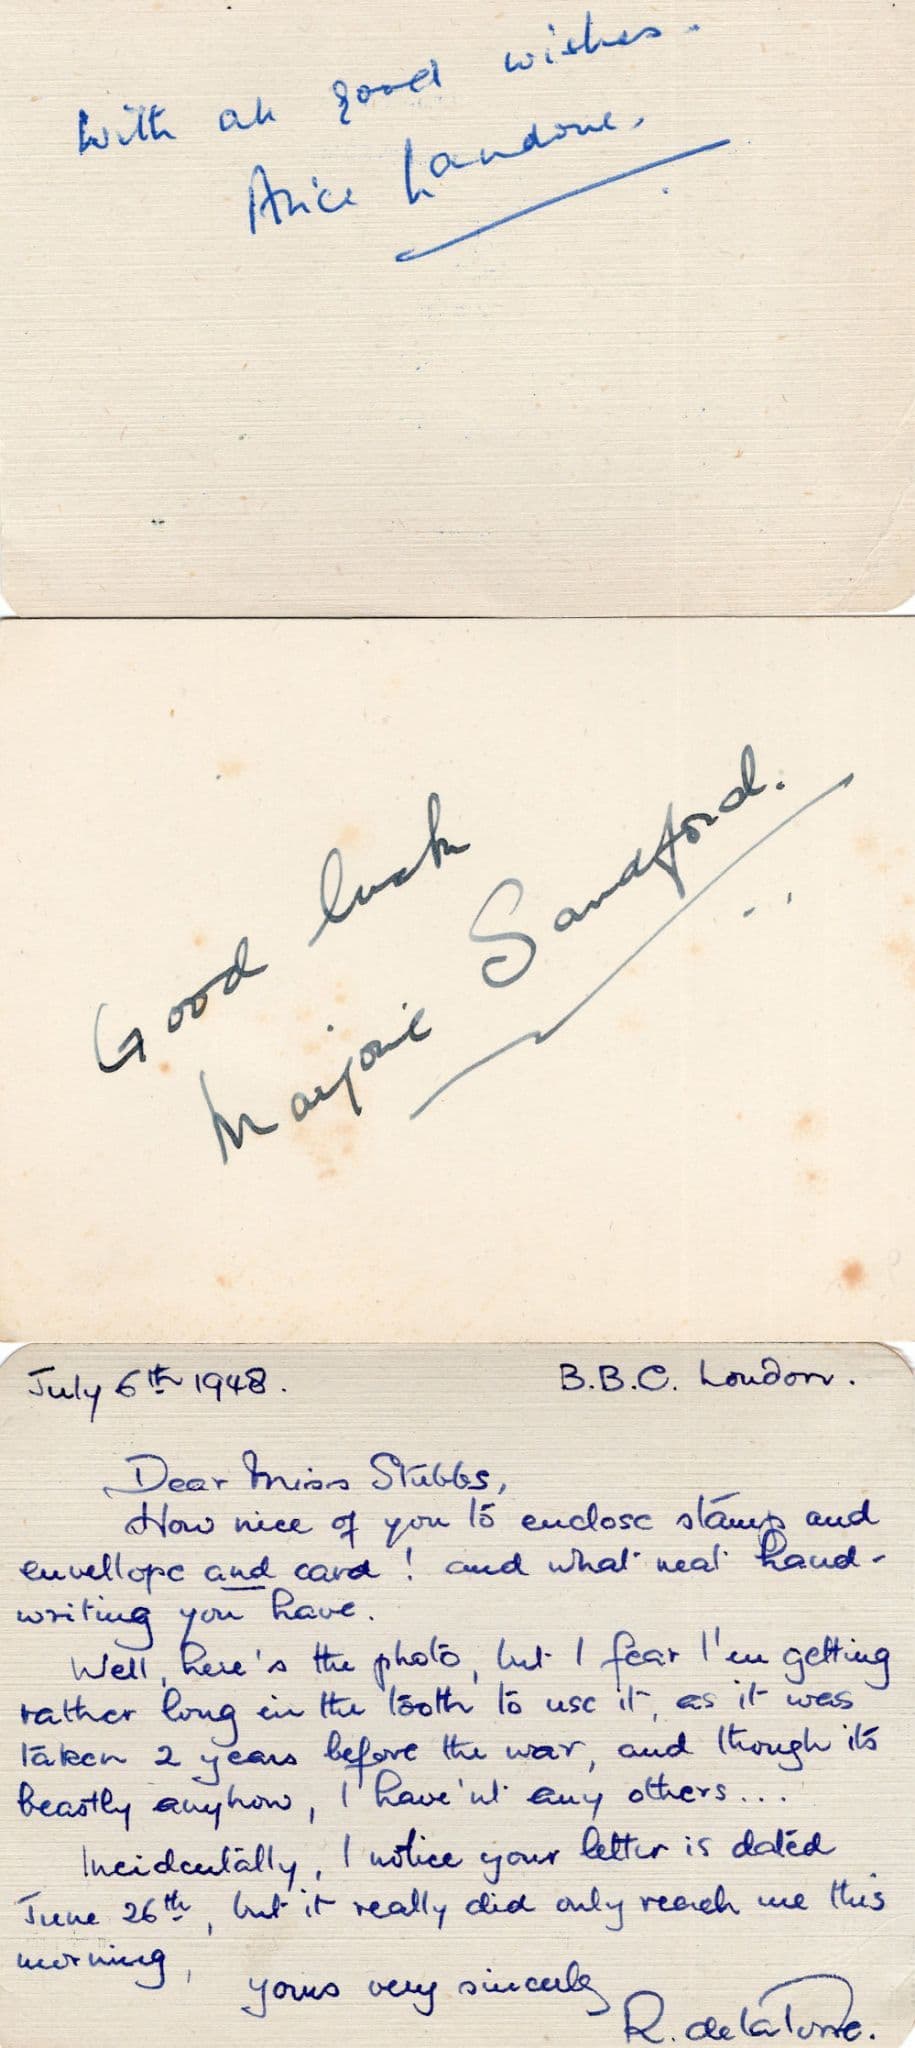 With all good wishes.
Alice Landone.
Good luck
Marjorie Sandford.
July 6th 1948.
B.B.C. London.
Dear Miss Stubbs,
How nice of you to enclose stamp and
envellope and card! and what neat hand-
writing you have.
Well, here's the photo, but I fear I'm getting
rather long in the tooth to use it, as it was
taken 2 years before the war, and though its
beastly anyhow, I have'nt any others...
Incidentally, I notice your letter is dated
June 26th, but it really did only reach me this
morning,
yours very sincerely
R. de la Torre.